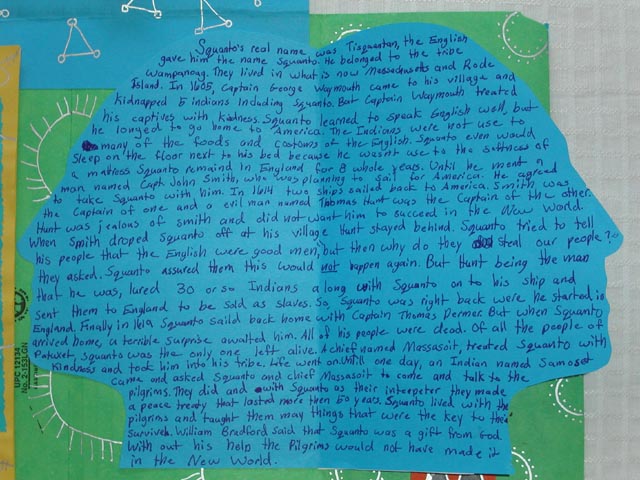 Squanto's real name was Tisquantan, the English
gave him the name Squanto. He belonged to the tribe
Wampanoag. They lived in what is now Massachusetts and Rode
Island. In 1605, Captain George Waymouth came to his village and
Kidnapped 5 indians Including Squanto. But Captain Waymouth treated
his captives with kidness. Squanto learned to speak English well, but
he longed to go home to America. The Indians were not use to
many of the foods and customs of the English. Squanto even would
Sleep on the floor next to his bed because he wasnt use to the softness of
a mattress Squanto remaind in England for 8 whole years. Until he ment a
man named Capt. John Smith, who was planning to sail for America. He agreed
to take Squanto with him. In 1614 two ships sailed back to America. Smith was
the Captain of one and a evil man named Thomas Hunt was the Captain of the other.
Hunt was jealous of smith and did not want him to succeed in the New World.
When Smith droped Squanto off at his village Hunt stayed behind Squanto tried to tell
his people that the English were good men, but then why do they steal our people?
they asked. Squanto assured them this would not happen again. But Hunt being the man
that he was, lured 30 or so Indians along with Squanto on to his ship and
sent them to England to be sold as slaves. So, Squanto was right back were he started in
England. Finally in 1619 Squanto saild back home with Captain Thomas Dermer. But when Squanto
arrived home, a terrible surprise awaited him. All of his people were dead. Of all the people of
Patuxet, Squanto was the only one left alive. A chief named Massasoit, treated Squanto with
Kindness and took him into his tribe. Life went on Until one day, an Indian named Samoset
Came and asked Squanto and chief Massasoit to come and talk to the
pilgrims. They did and with Squanto as their interpeter they made
a peace treaty that lasted more then 50 years. Squanto lived with the
pilgrims and taught them may things that were the key to their
Survival. William Bradford said that Squanto was a gift from God.
With out his help the Pilgrims would not have made it
in the New World.
UPC 12134
No. 2-153LGN